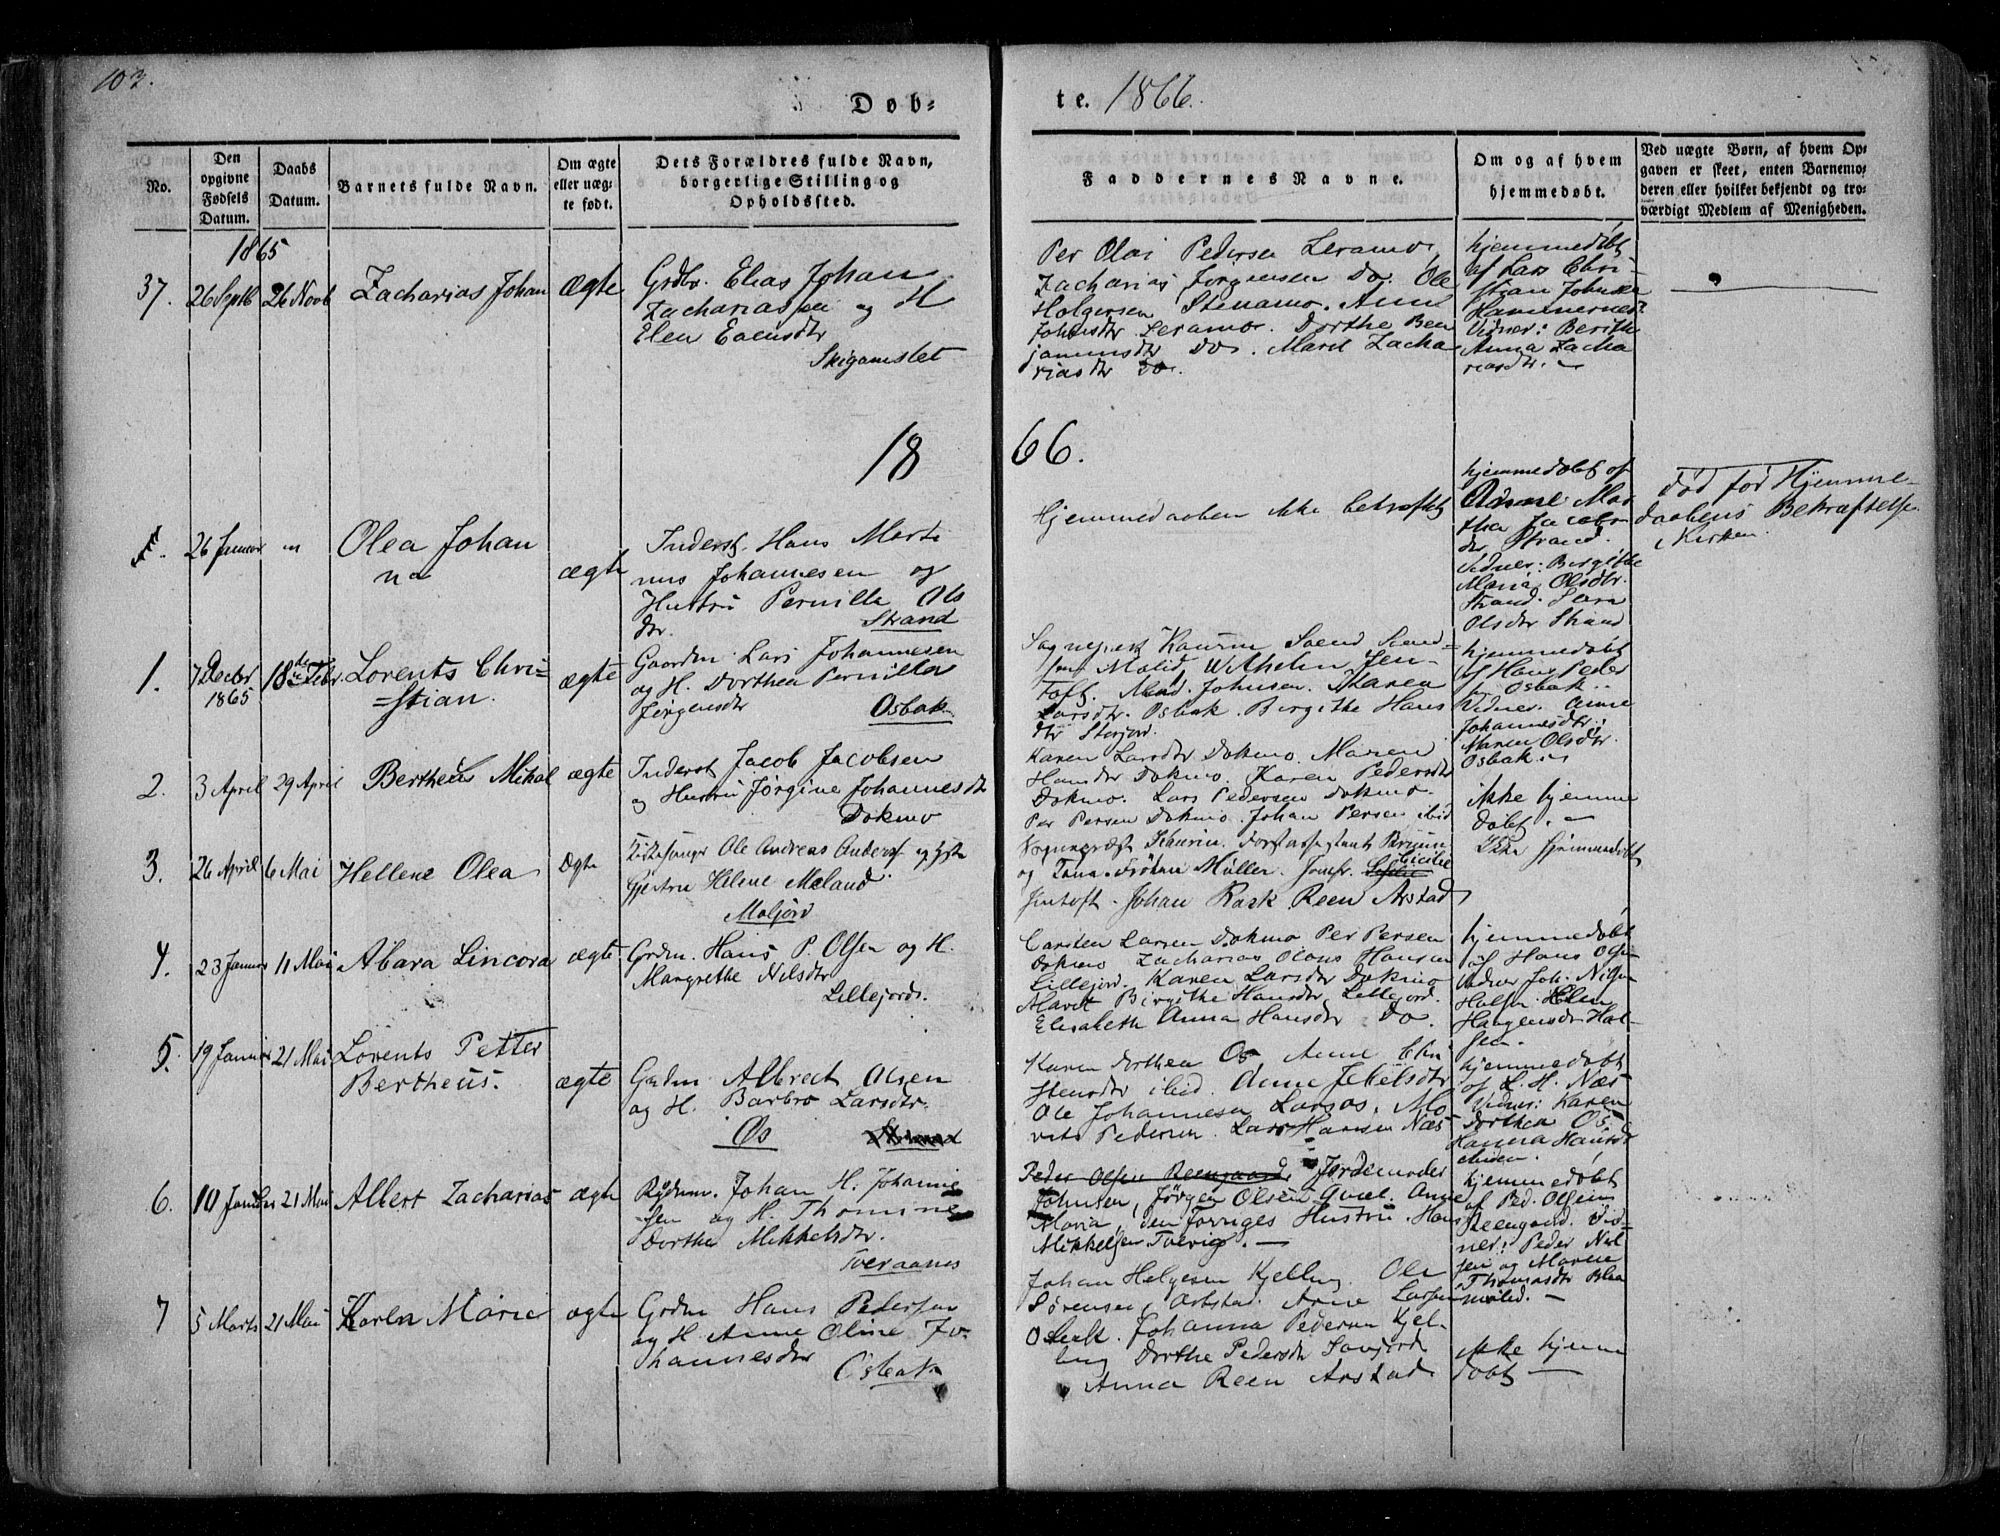 103.
Døb-
te. 1866.
No.
Den opgivne Fødsels Datum.
Daabs Datum.
Barnets fulde Navn.
Om ægte eller uægte født.
Dets Forældres fulde Navn, borgerlige Stilling og Opholdssted.
Faddernes Navne.
Om og af hvem hjemmedøbt.
Ved uægte Børn, af hvem Opgaven er skeet, enten Barnemoderen eller hvilket bekjendt og troværdigt Medlem af Menigheden.
1865
37. 26 Septb 26 Novb Zacharias Johan ægte
Grdbr. Elias Johan
Zachariassen og H
Elen Evensdtr
Skigamslet
Per Olai Pedersen Leramo,
Zacharias Jørgensen Do. Ole
Holgersen Stenamo. Ane
Johnsdtr Leramo. Dorthe Ben
jaminsdtr Do. Maret Zacha
riasdtr Do.
hjemmedøbt
af Lars Chri-
stian Johnsen
Hammernes.
Vidner: Berithe
Anna Zacha
riasdtr. -
1866.
26 Januar " Olea Johan
na
ægte
Inderst. Hans Marti
nus Johannesen og
Hustru Pernilla Ols
dtr. Strand
Hjemmedaaben ikke bekræftet
hjemmedøbt af
Anne Mar
tha Jacobs
dtr Strand.
Vidner: Bergitte
Maria Olsdtr.
Strand. Sara
Olsdtr Strand
død før Hjemme-
daabens Bekræftelse
i Kirken.
1. 7 Decbr 1865 18de Febr. Lorents Chri-
=stian.
ægte
Gaardm. Lars Johannesen
og H. Dorthea Pernilla
Jørgensdtr Osbak
Sognepræst Kaurin
Wilhelm Jen-
toft. Johnsen. Maren
Larsdtr. Osbak. Birgithe Hans
dtr Storjord.
hjemmedøbt
af Hans Peder
Osbak.
Vidner. Anne
Johannesdtr.
Maren Olsdtr.
Osbak.
2. 3 April 29 April Bertheus Mikal ægte
Inderst Jacob Jacobsen
og Hustru Jørgine Johannesdtr
Dokmo
Karen Larsdtr Dokmo. Maren
Hansdtr Dokmo. Karen Pedersdtr
Dokmo. Lars Pedersen Dokmo.
Per Persen Dokmo. Johan Persen ibid
ikke hjemme
døbt. -
3. 26 April 6 Mai Hellene Olea Ægte
Kirkesanger Ole Andreas Anders og
Hustru Helene Meland
Moljord
Sognepræst Kaurin. Forstassistent Bruun
og Frøken Müller. Jomfr. Cecilie
Jentoft. Johan Rask Reen Arstad
Ikke hjemmedøbt
4. 23 Januar 11 Mai Abara Lincora ægte
Grdm. Hans P. Olsen og H.
Margrethe Nilsdtr
Lillejord.
Carsten Larsen Dokmo Per Persen
Dokmo Zacharias Olaus Hansen
Lillejord. Karen Larsdtr Dokmo
Maret Birgithe Hansdtr Lillejord.
Elisabeth Anna Hansdtr Do.
hjemmedøbt
af Hans Olsen
Vidner Joh. Nilsen
Holsen Elen
5. 19 Januar 21 Mai Lorents Petter
Bertheus.
ægte
Grdm. Albrect Olsen
og H. Barbro Larsdtr.
Os
Karen Dorthea Os Anne Chri
stensdtr ibid. Anne Jekelsdtr
Ole Johannesen Larsos. Mo
rits Pedersen. Lars Hansen Næs
hjemmedøbt
af L. H. Næs
Vidner: Karen
Dorthea Os
Hanna Hansdtr
6. 10 Januar 21 Mai Albert Zacharias ægte
Rydnm. Johan H. Johanne
sen og H. Thomine
Dorthe Mikkelsdtr.
Tveraanes
Peder Olsen Reengaard Jordemoder
Johnsen, Jørgen Olsen Qvæl. Anne
Maria, den Forriges Hustru. Hans
Mikkelsen Tvervig. -
hjemmedøbt
af Ped. Olsen
Reengaard. Vid-
ner: Peder Niel
sen og Marene
Thomasdtr
7 5 Marts 21 Mai Karen Marie ægte
Grdm Hans Pedersen
og H. Anne Oline Jo-
hannesdtr
Osbak
Johan Helgesen Kjelling. Ole
Sørensen, Arstad. Arne Larsen
Osbak. Johanna Pedersen Kjel-
ling Dorthe Pedersdtr
Anna Reen Arstad
ikke hjemme
døbt -